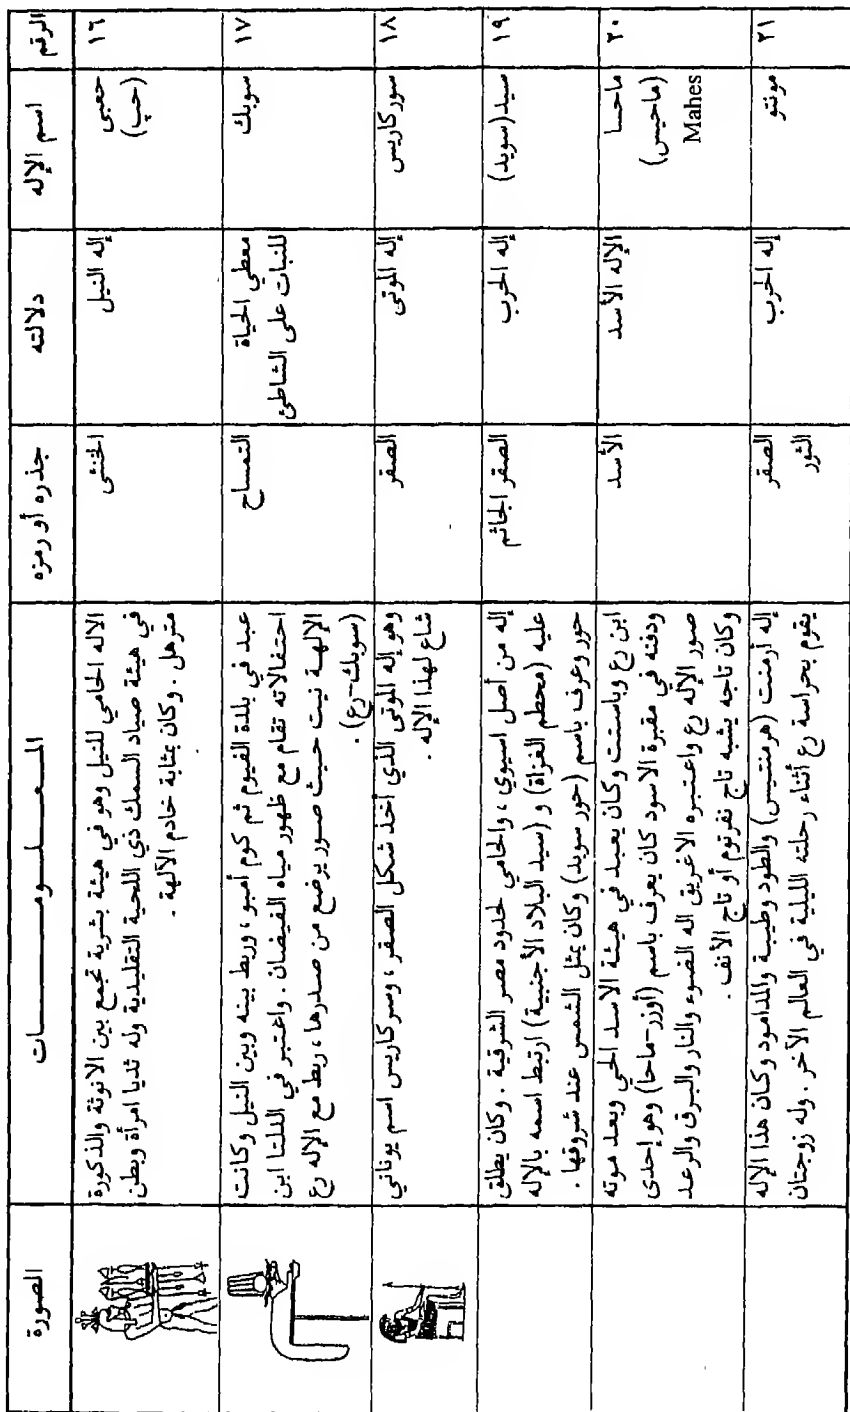 الرقم
اسم الإله
دلالته
جذره أو رمزه
المـعـلـومـات
الصورة
١٦
حعبي
(حپ)
إله النيل
الخنثى
الاله الحامي للنيل وهو في هيئة بشرية تجمع بين الانوثة والذكورة
في هيئة صياد السمك ذي اللحية التقليدية وله ثديا امرأة وبطن
مترهل . وكان بمثابة خادم الآلهة .
١٧
سوبك
معطي الحياة
للنبات على الشاطئ
التمساح
عبد في بلدة الفيوم ثم كوم أمبو ، وربط بينه وبين النيل وكانت
احتفالاته تقام مع ظهور مياه الفيضان . واعتبر في الدلتا ابن
الإلهة نيت حيث صور يرضع من صدرها ، ربط مع الإله رع
(سوبك-رع) .
١٨
سوركاريس
إله الموتى
الصقر
وهو إله الموتى الذي أخذ شكل الصقر ، وسركاريس اسم يوناني
شاع لهذا الإله .
١٩
سبد(سوبد)
إله الحرب
الصقر الجاثم
إله من أصل اسيوي ، والحامي لحدود مصر الشرقية . وكان يطلق
عليه (محطم الغزاة) و (سيد البلاد الأجنبية) ارتبط اسمه بالإله
حور وعرف باسم (حور سوبد) وكان يمثل الشمس عند شروقها .
٢٠
ماحسا
(ماحيس)
Mahes
الإله الأسد
الأسد
ابن رع وباستت وكان يعبد في هيئة الاسد الحي وبعد موته
ودفنه في مقبرة الاسود كان يعرف باسم (أوزر-ماحا) وهو إحدى
صور الإله رع واعتبره الاغريق اله الضوء والنار والبرق والرعد
وكان تاجه يشبه تاج نفرتوم أو تاج الأنف .
٢١
مونتو
إله الحرب
الصقر
الثور
إله أرمنت (هرمنتيس) والطود وطيبة والمدامود وكان هذا الإله
يقوم بحراسة رع أثناء رحلته الليلية في العالم الآخر . وله زوجتان